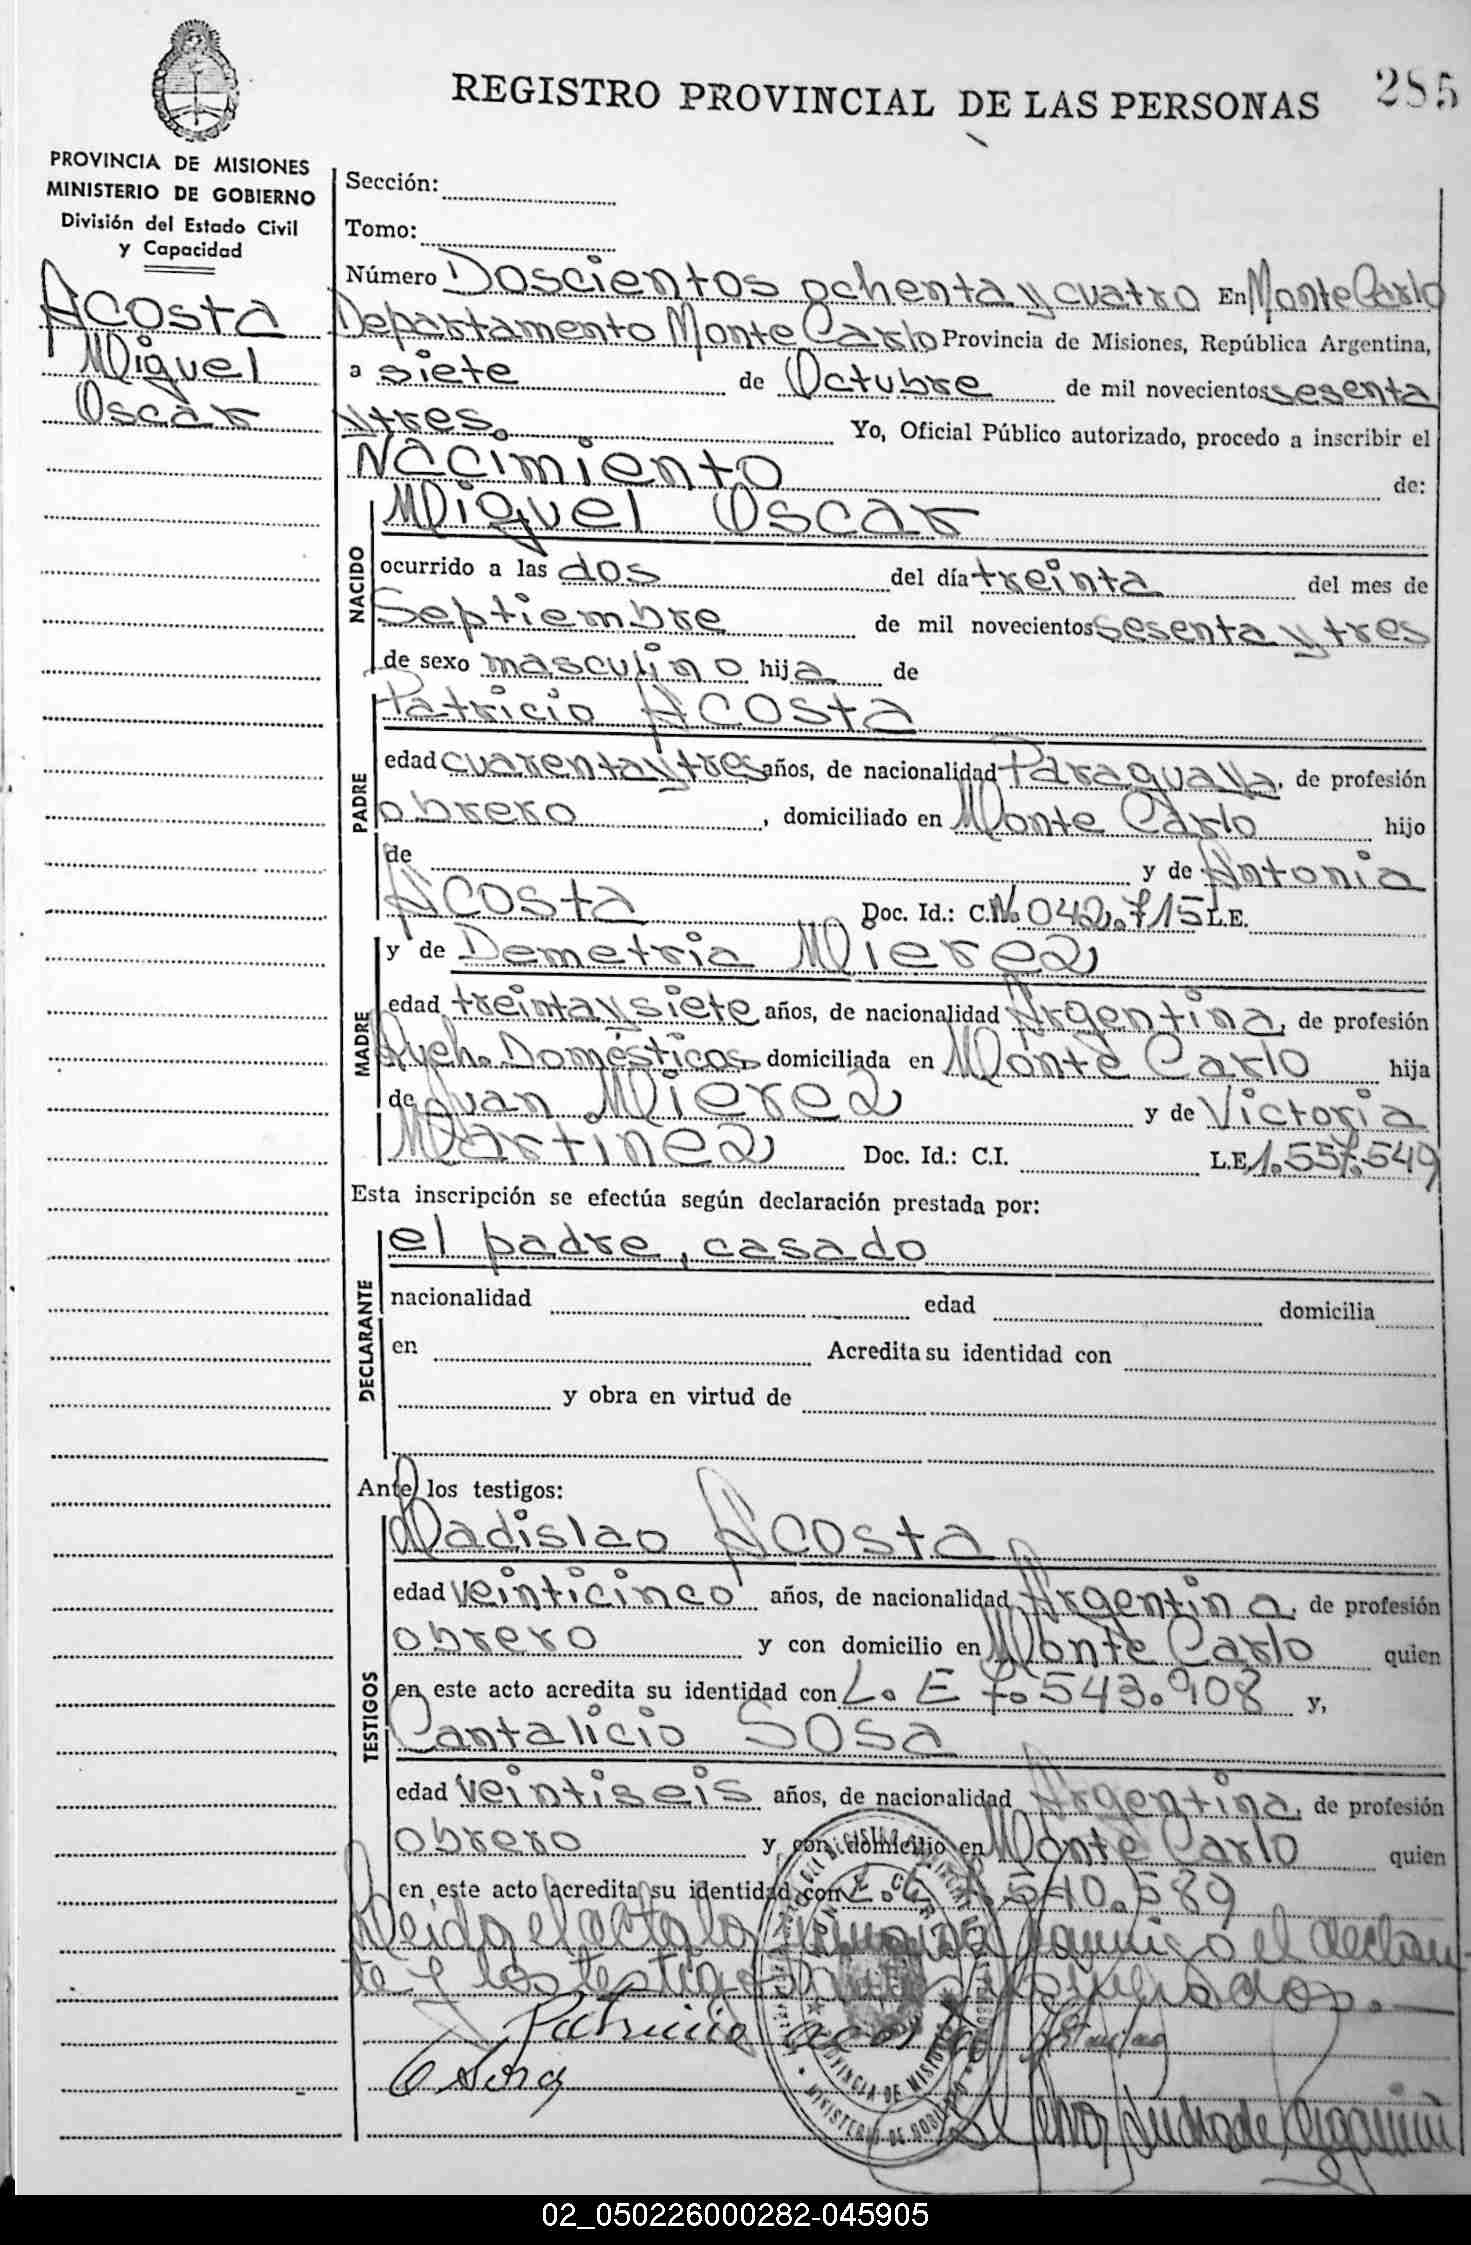 REGISTRO PROVINCIAL DE LAS PERSONAS
285
PROVINCIA DE MISIONES
MINISTERIO DE GOBIERNO
División del Estado Civil
y Capacidad
Acosta
Miguel
Oscar
Sección:
Tomo:
Número Doscientos ochenta y cuatro En Monte Carlo
Departamento Monte Carlo Provincia de Misiones, República Argentina,
a siete de Octubre de mil novecientos sesenta
y tres. Yo, Oficial Público autorizado, procedo a inscribir el
Nacimiento de:
NACIDO
Miguel Oscar
ocurrido a las dos del día treinta del mes de
Septiembre de mil novecientos sesenta y tres
de sexo masculino hija de
PADRE
Patricio Acosta
edad cuarenta y tres años, de nacionalidad Paraguaya, de profesión
obrero, domiciliado en Monte Carlo hijo
de y de Antonia
Acosta Doc. Id.: C. No. 042.715 L.E.
MADRE
y de Demetria Mierez
edad treinta y siete años, de nacionalidad Argentina, de profesión
Queh. Domésticos domiciliada en Monte Carlo hija
de Juan Mierez y de Victoria
Martinez Doc. Id.: C.I. L.E. 1.557.549
Esta inscripción se efectúa según declaración prestada por:
DECLARANTE
el padre, casado
nacionalidad edad domicilia
en Acredita su identidad con
y obra en virtud de
Ante los testigos:
TESTIGOS
Ladislao Acosta
edad veinticinco años, de nacionalidad Argentina, de profesión
obrero y con domicilio en Monte Carlo quien
en este acto acredita su identidad con L. E 7.543.908 y,
Cantalicio Sosa
edad veintiseis años, de nacionalidad Argentina, de profesión
obrero y con domicilio en Monte Carlo quien
en este acto acredita su identidad con 540.589
Leida el acta la conmigo el declaran-
te y los testigos
Patricio Acosta
C Sosa
PROVINCIA DE MISIONES
MINISTERIO DE GOBIERNO
02_050226000282-045905